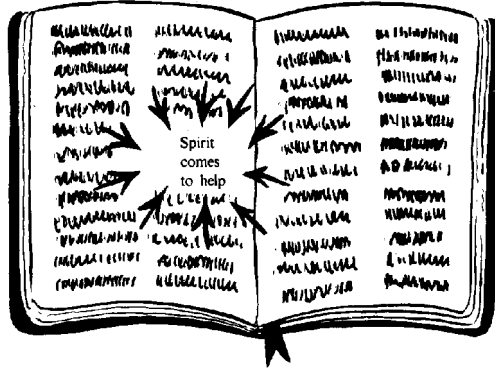 Spirit
comes
to help